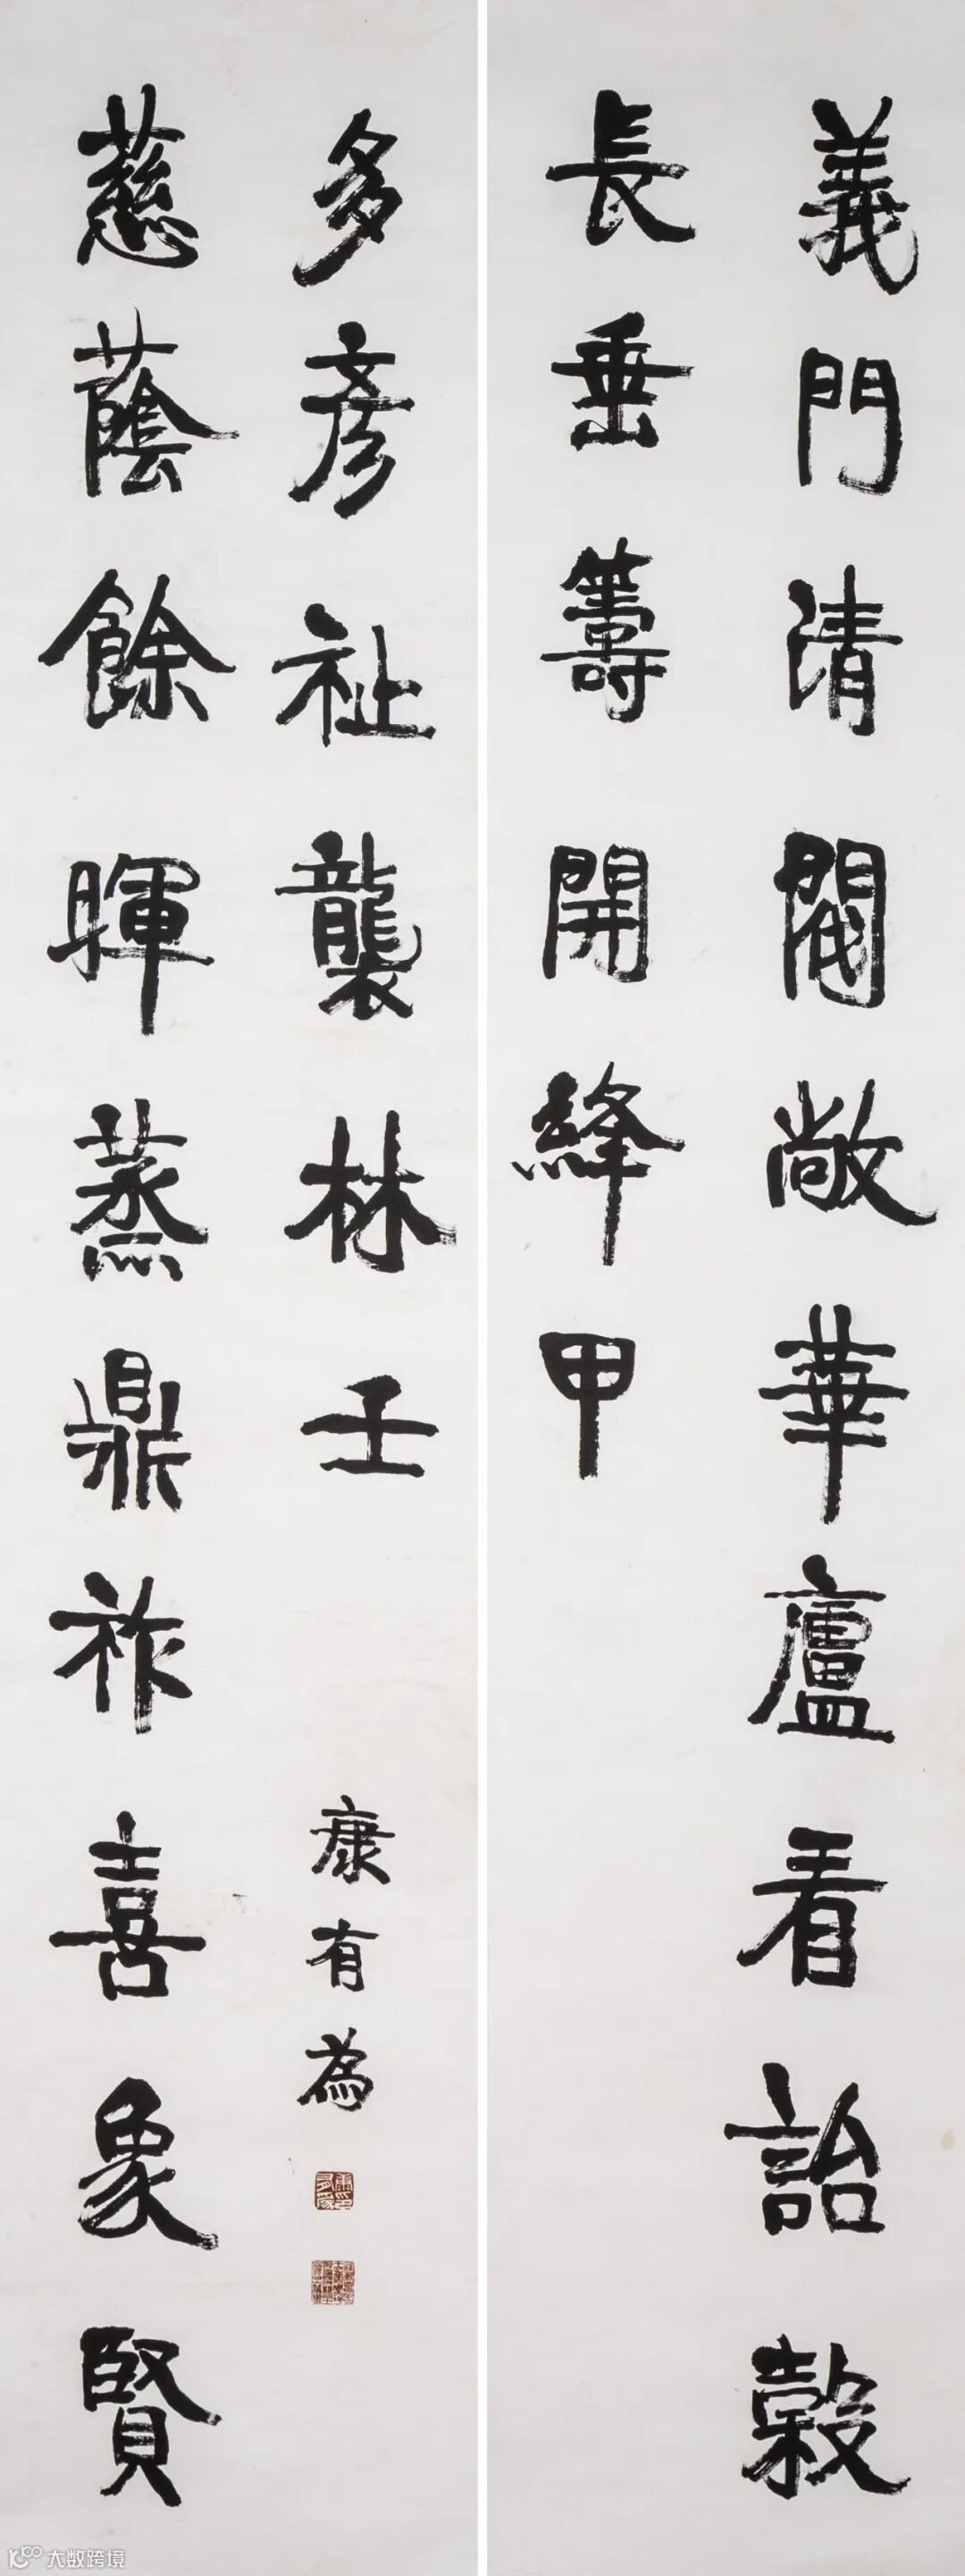 義門清閥敞華廬看詒穀
長垂籌開絳甲
慈蔭餘暉蒸鼎祚喜象賢
多彥祉襲林壬
康有為
康有為印
大数跨境